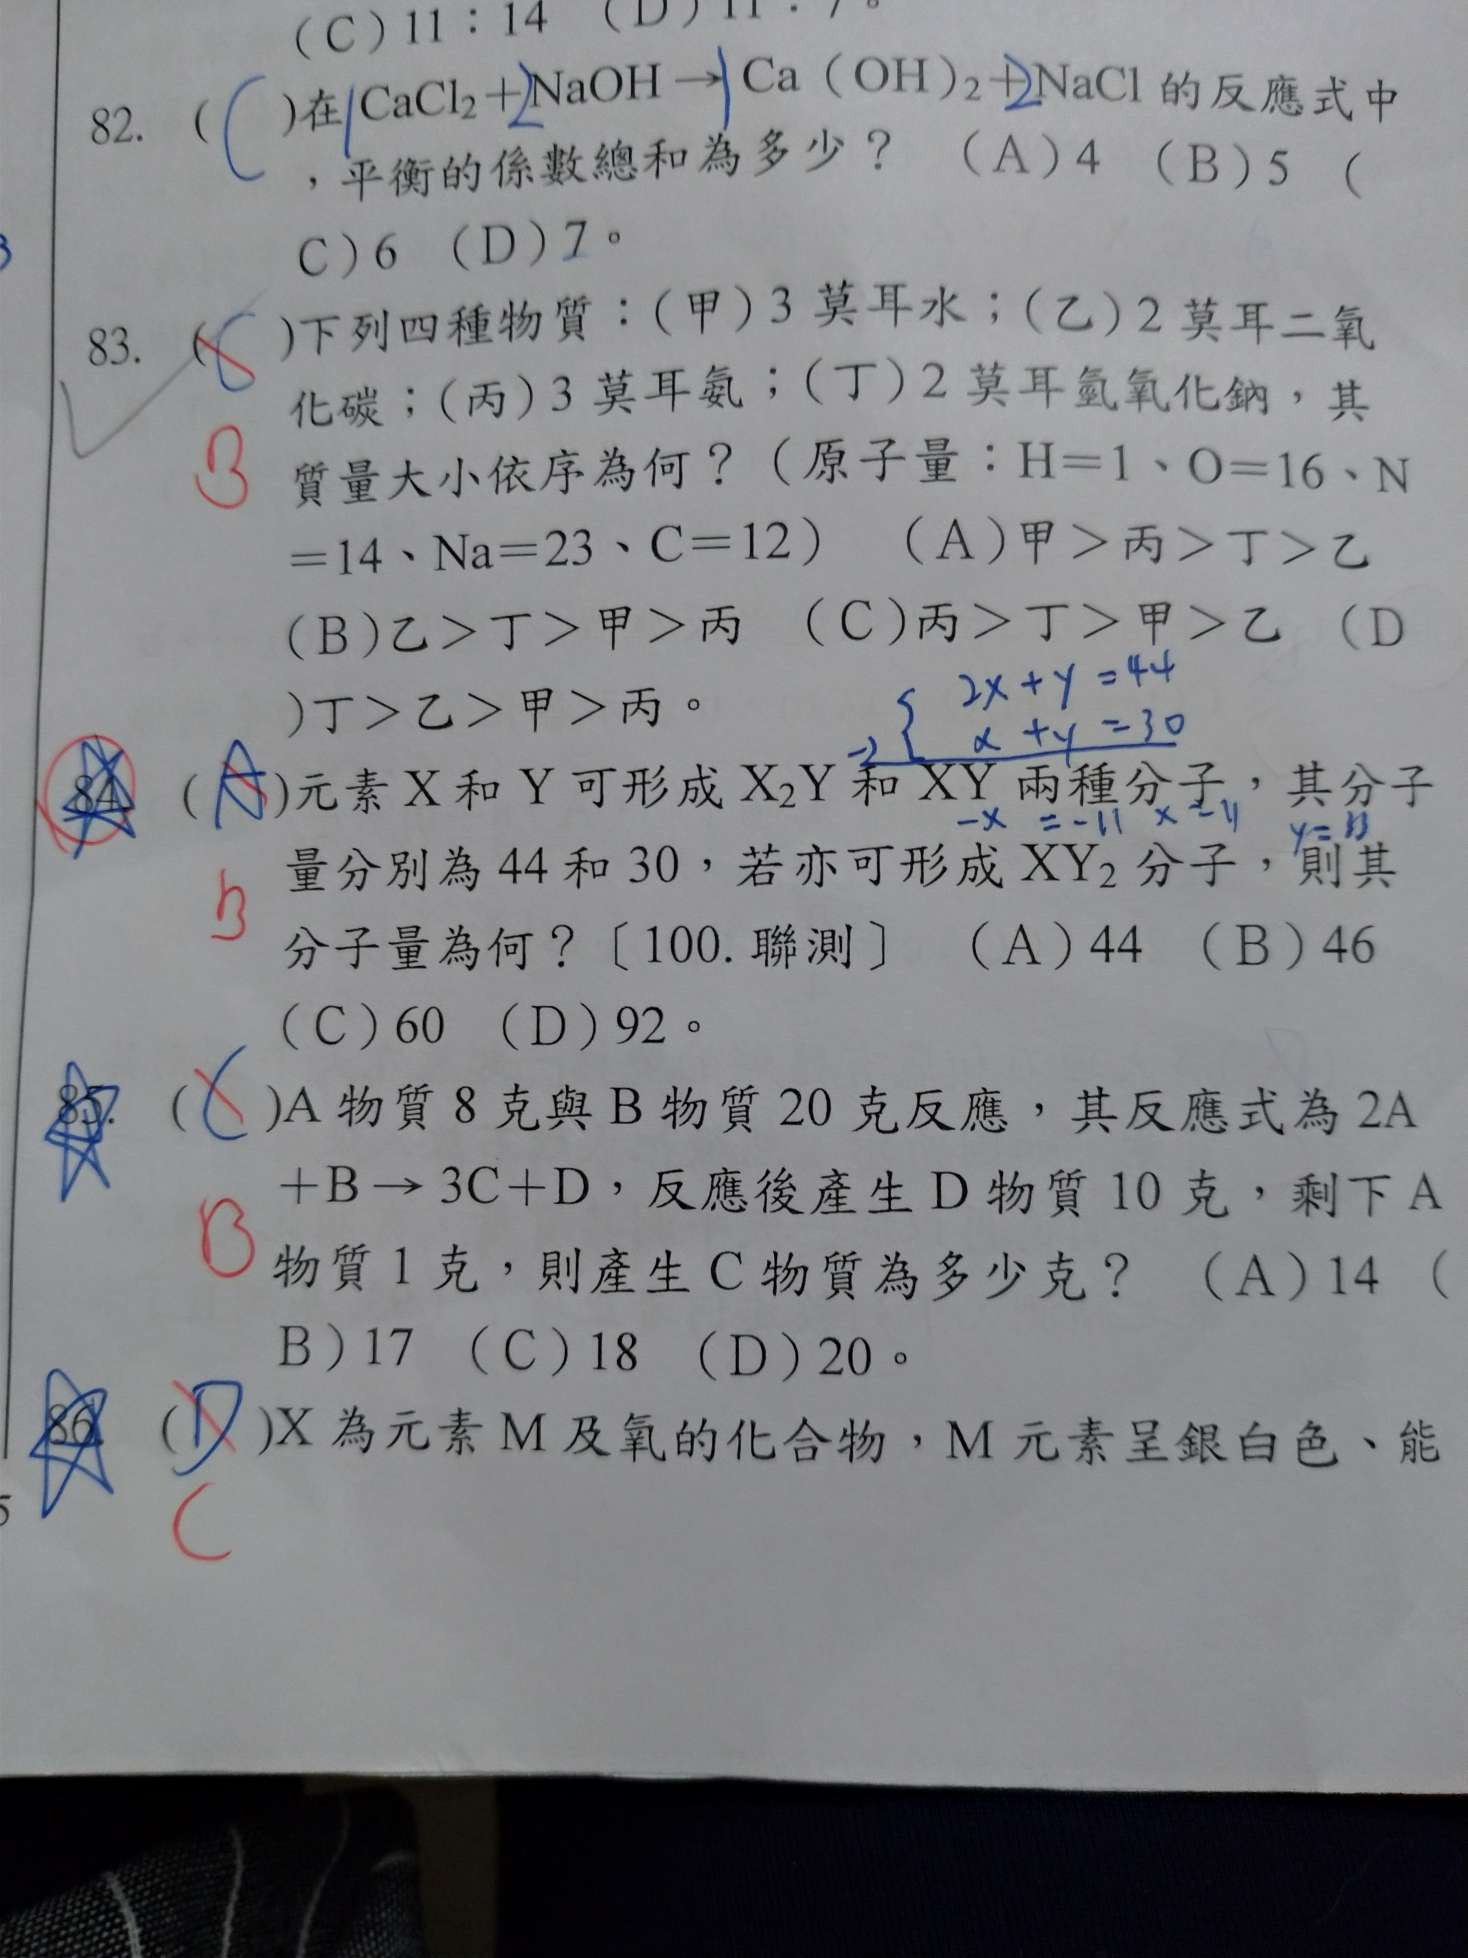 (C)11：14 (D)11：7。
82. (C)在1CaCl₂+2NaOH→1Ca（OH）₂+2NaCl的反應式中
，平衡的係數總和為多少？ (A)4 (B)5 (
C)6 (D)7。
83. (C)下列四種物質：(甲)3莫耳水；(乙)2莫耳二氧
化碳；(丙)3莫耳氨；(丁)2莫耳氫氧化鈉，其
B
質量大小依序為何？（原子量：H＝1、O＝16、N
＝14、Na＝23、C＝12） (A)甲＞丙＞丁＞乙
(B)乙＞丁＞甲＞丙 (C)丙＞丁＞甲＞乙 (D
)丁＞乙＞甲＞丙。
2x+y=44
x+y=30
84. (A)元素X和Y可形成X₂Y和XY兩種分子，其分子
-x =-11 x=11
量分別為44和30，若亦可形成XY₂分子，則其
B
分子量為何？〔100.聯測〕 (A)44 (B)46
(C)60 (D)92。
85. (C)A物質8克與B物質20克反應，其反應式為2A
＋B→3C＋D，反應後產生D物質10克，剩下A
B
物質1克，則產生C物質為多少克？ (A)14 (
B)17 (C)18 (D)20。
86. (D)X為元素M及氧的化合物，M元素呈銀白色、能
C